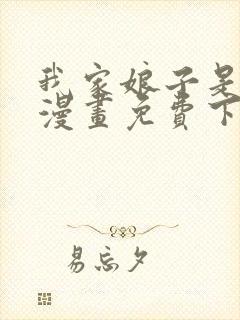 我家娘子是
漫畫免費下
易忘夕